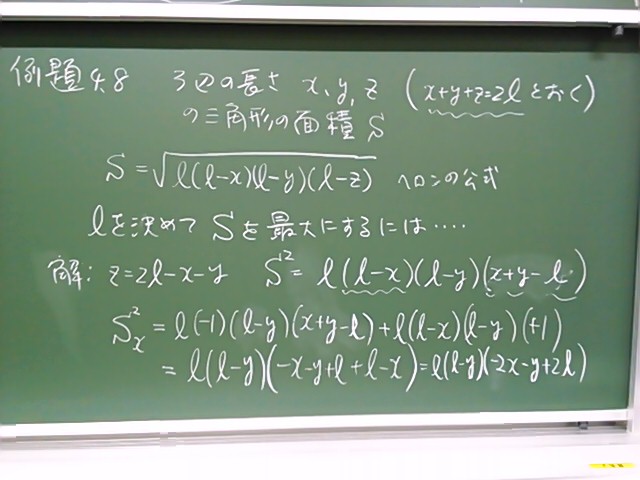 例題4.8 3辺の長さ x, y, z (x+y+z=2ℓとおく)
の三角形の面積 S
S = √ℓ(ℓ-x)(ℓ-y)(ℓ-z) ヘロンの公式
ℓを決めて Sを最大にするには‥‥
解: z=2ℓ-x-y S² = ℓ(ℓ-x)(ℓ-y)(x+y-ℓ)
S²ₓ = ℓ(-1)(ℓ-y)(x+y-ℓ)+ℓ(ℓ-x)(ℓ-y)(+1)
= ℓ(ℓ-y)(-x-y+ℓ+ℓ-x)=ℓ(ℓ-y)(-2x-y+2ℓ)